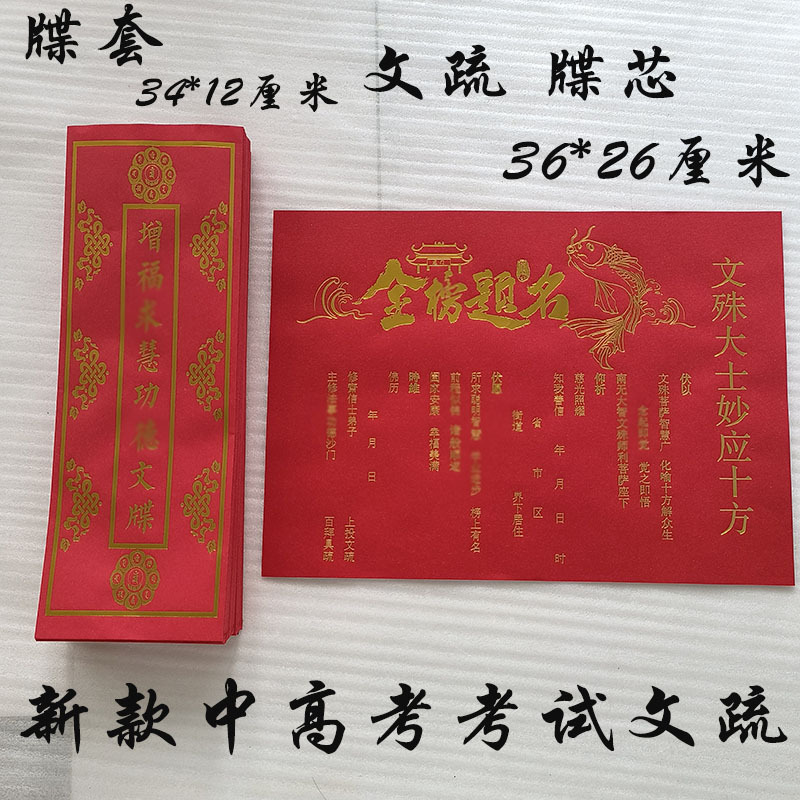 牒套
34*12厘米
文疏 牒芯
36*26厘米
增福求慧功德文牒
金榜题名
文殊大士妙应十方
伏以
文殊菩萨智慧广 化喻十方解众生
觉之即悟
南无大智文殊师利菩萨座下
仰祈
慈光照耀
知我善信 年 月 日 时
省 市 区
街道 界下居住
伏愿
所求聪明智慧 榜上有名
前程似锦
国家安康 幸福美满
时维
佛历
年 月 日
修斋信士弟子 上投文疏
主修 沙门 百拜具疏
新款中高考考试文疏